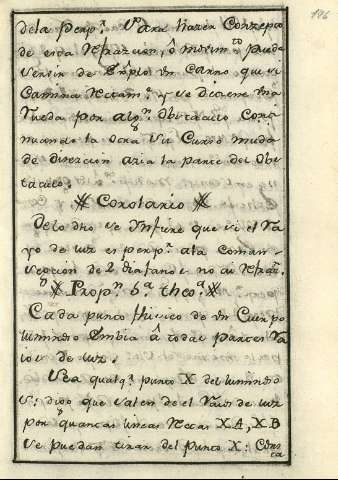 186
dela perp.r Para hazer Conzepto
de esta Refrazion, ô movim.to puede
servir de Exemplo un Carro que si
Camina Rectam.te y se detiene una
rueda por alg.n Obstaculo Conti
nuando la otra su Curso muda
de direzcion azia la parte del Obs
taculo.
Corolario
Delo dho se Infiere que si el Ra
yo de luz es perp.r ala Comun
seccion de 2 diafanos no ai Refraz.n
Prop.n 6.a theo.a
Cada punto fhisico de un Cuerpo
luminoso Embia â todas partes Ra
ios de luz.
Sea qualq.r punto X del luminoso
S: digo que salen de el Raios de luz
por quantas lineas Rectas XA, XB
se puedan tirar del punto X: Cons
ta